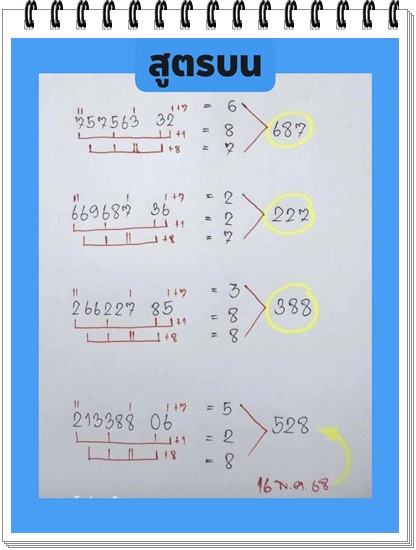 สูตรบน
757563 32 1+7 = 6
+1 = 8 687
+8 = 7
669687 36 1+7 = 2
+1 = 2 227
+8 = 7
266227 85 1+7 = 3
+1 = 8 388
+8 = 8
213388 06 1+7 = 5
+1 = 2 528
+8 = 8
16 พ.ค. 68